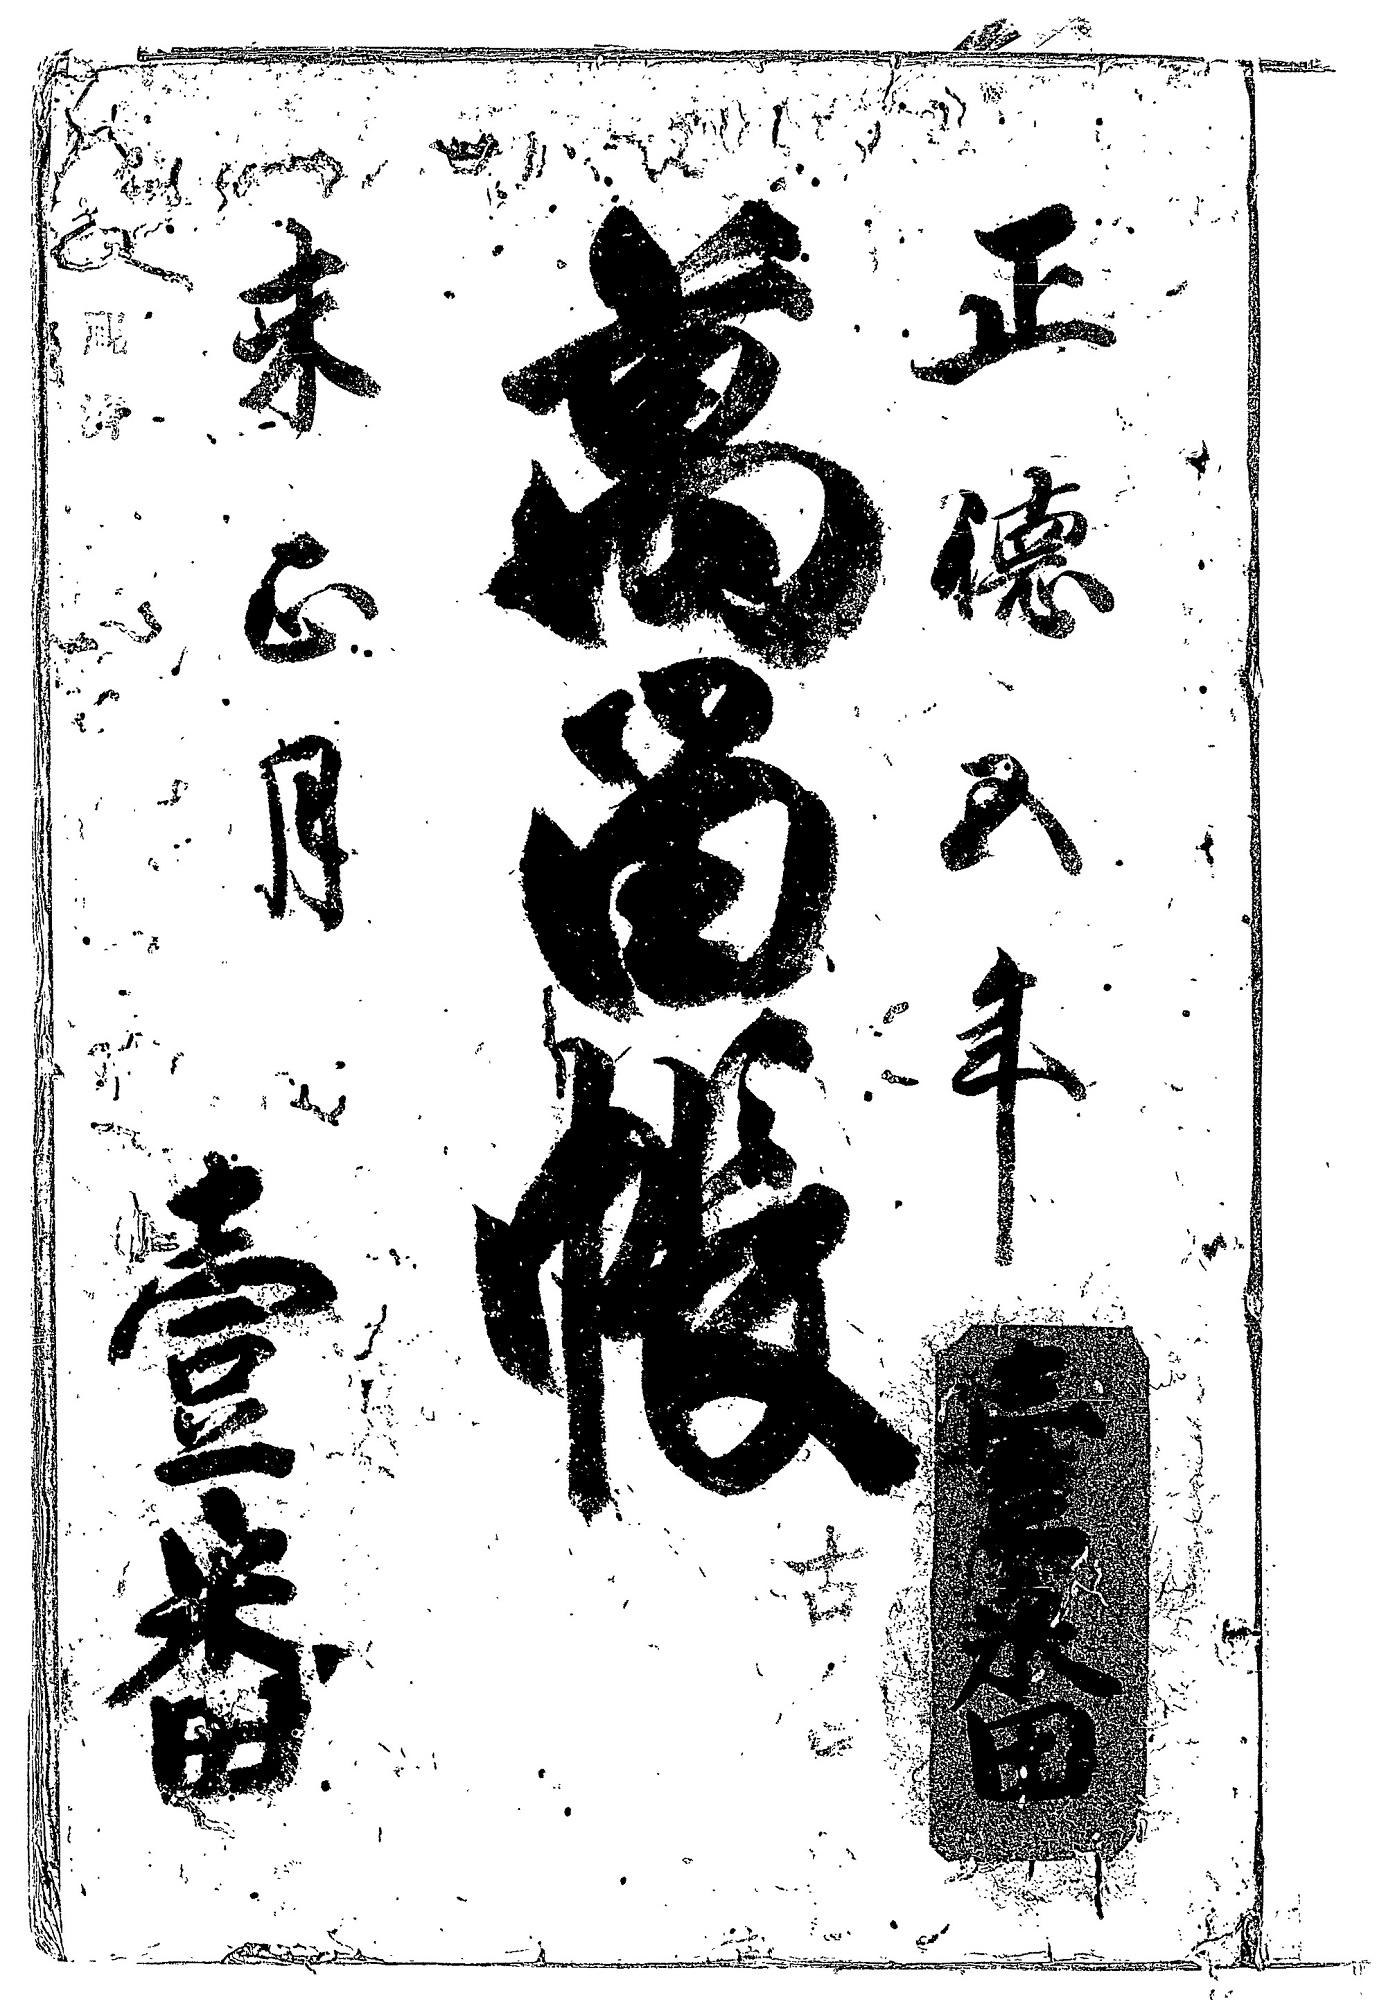 正徳五年
壹番
萬留帳
未正月
壹番